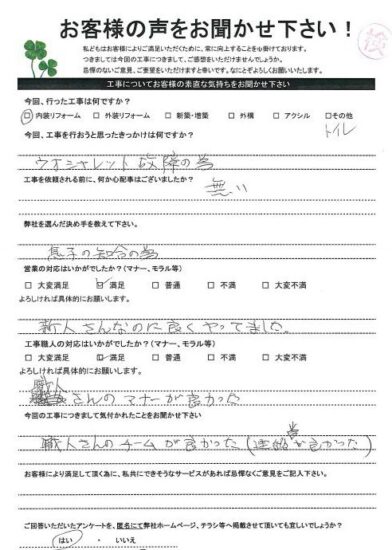 お客様の声をお聞かせ下さい！
私どもはお客様によりご満足いただくために、常に向上することを心掛けております。
つきましては今回の工事につきまして、ご感想をいただけませんでしょうか。
忌憚のないご意見、ご要望をいただけますと幸いです。なにとぞよろしくお願いいたします。
工事についてお客様の素直な気持ちをお聞かせ下さい
今回、行った工事は何ですか？
☑内装リフォーム □外装リフォーム □新築・増築 □外構 □アクシル □その他
トイレ
今回、工事を行おうと思ったきっかけは何ですか？
ウオシャレット故障の為
工事を依頼される前に、何か心配事はございましたか？
無い
弊社を選んだ決め手を教えて下さい。
息子の知合の為
営業の対応はいかがでしたか？（マナー、モラル等）
□ 大変満足 ☑ 満足 □ 普通 □ 不満 □ 大変不満
よろしければ具体的にお願いします。
新人さんなのに良くやってました。
工事職人の対応はいかがでしたか？（マナー、モラル等）
□ 大変満足 ☑ 満足 □ 普通 □ 不満 □ 大変不満
よろしければ具体的にお願いします。
職人さんのマナーが良かった
今回の工事につきまして気付かれたことをお聞かせ下さい
職人さんのチームが良かった（連絡等が良かった）
お客様により満足して頂く為に、私共にできそうなサービスがあれば忌憚なくご意見をご記入下さい。
ご回答いただいたアンケートを、匿名にて弊社ホームページ、チラシ等へ掲載させて頂いても宜しいでしょうか？
はい ・ いいえ